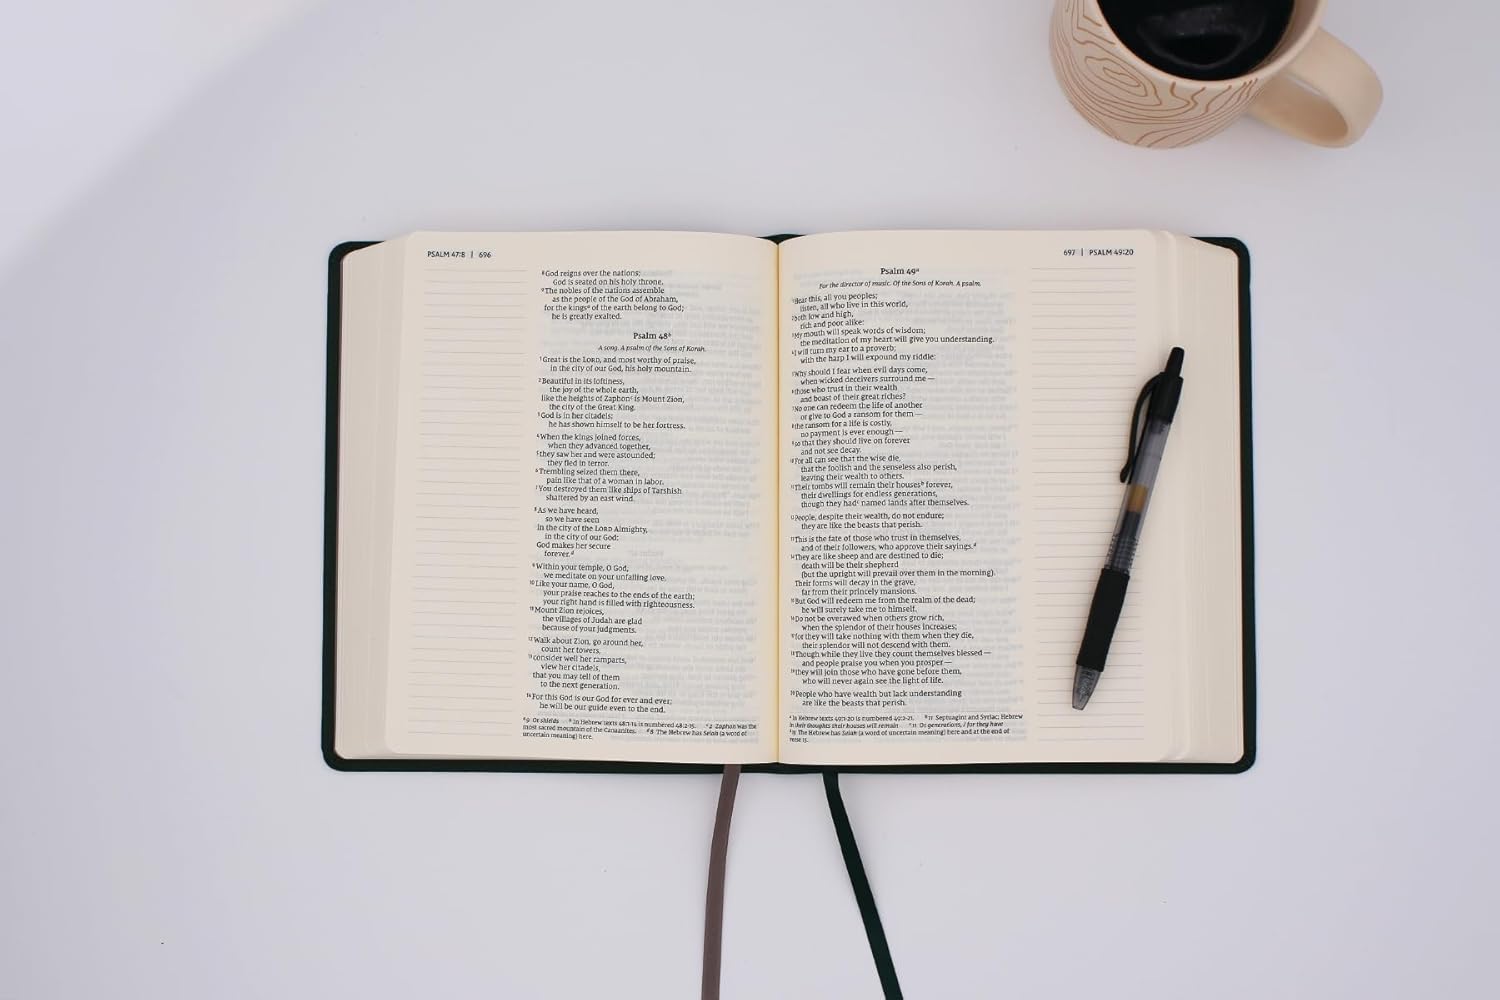 PSALM 47:8 | 696
⁸God reigns over the nations;
God is seated on his holy throne.
⁹The nobles of the nations assemble
as the people of the God of Abraham,
for the kingsᵃ of the earth belong to God;
he is greatly exalted.
Psalm 48ᵇ
A song. A psalm of the Sons of Korah.
¹Great is the LORD, and most worthy of praise,
in the city of our God, his holy mountain.
²Beautiful in its loftiness,
the joy of the whole earth,
like the heights of Zaphonᶜ is Mount Zion,
the city of the Great King.
³God is in her citadels;
he has shown himself to be her fortress.
⁴When the kings joined forces,
when they advanced together,
⁵they saw her and were astounded;
they fled in terror.
⁶Trembling seized them there,
pain like that of a woman in labor.
⁷You destroyed them like ships of Tarshish
shattered by an east wind.
⁸As we have heard,
so we have seen
in the city of the LORD Almighty,
in the city of our God:
God makes her secure
forever.ᵈ
⁹Within your temple, O God,
we meditate on your unfailing love.
¹⁰Like your name, O God,
your praise reaches to the ends of the earth;
your right hand is filled with righteousness.
¹¹Mount Zion rejoices,
the villages of Judah are glad
because of your judgments.
¹²Walk about Zion, go around her,
count her towers,
¹³consider well her ramparts,
view her citadels,
that you may tell of them
to the next generation.
¹⁴For this God is our God for ever and ever;
he will be our guide even to the end.
ᵃ9 Or shields ᵇIn Hebrew texts 48:1-14 is numbered 48:2-15. ᶜ2 Zaphon was the
most sacred mountain of the Canaanites. ᵈ8 The Hebrew has Selah (a word of
uncertain meaning) here.
697 | PSALM 49:20
Psalm 49ᵃ
For the director of music. Of the Sons of Korah. A psalm.
¹Hear this, all you peoples;
listen, all who live in this world,
²both low and high,
rich and poor alike:
³My mouth will speak words of wisdom;
the meditation of my heart will give you understanding.
⁴I will turn my ear to a proverb;
with the harp I will expound my riddle:
⁵Why should I fear when evil days come,
when wicked deceivers surround me—
⁶those who trust in their wealth
and boast of their great riches?
⁷No one can redeem the life of another
or give to God a ransom for them—
⁸the ransom for a life is costly,
no payment is ever enough—
⁹so that they should live on forever
and not see decay.
¹⁰For all can see that the wise die,
that the foolish and the senseless also perish,
leaving their wealth to others.
¹¹Their tombs will remain their housesᵇ forever,
their dwellings for endless generations,
though they hadᶜ named lands after themselves.
¹²People, despite their wealth, do not endure;
they are like the beasts that perish.
¹³This is the fate of those who trust in themselves,
and of their followers, who approve their sayings.ᵈ
¹⁴They are like sheep and are destined to die;
death will be their shepherd
(but the upright will prevail over them in the morning).
Their forms will decay in the grave,
far from their princely mansions.
¹⁵But God will redeem me from the realm of the dead;
he will surely take me to himself.
¹⁶Do not be overawed when others grow rich,
when the splendor of their houses increases;
¹⁷for they will take nothing with them when they die,
their splendor will not descend with them.
¹⁸Though while they live they count themselves blessed—
and people praise you when you prosper—
¹⁹they will join those who have gone before them,
who will never again see the light of life.
²⁰People who have wealth but lack understanding
are like the beasts that perish.
ᵃIn Hebrew texts 49:1-20 is numbered 49:2-21. ᵇ11 Septuagint and Syriac; Hebrew
In their thoughts their houses will remain ᶜ11 Or generations, / for they have
ᵈ13 The Hebrew has Selah (a word of uncertain meaning) here and at the end of
verse 15.